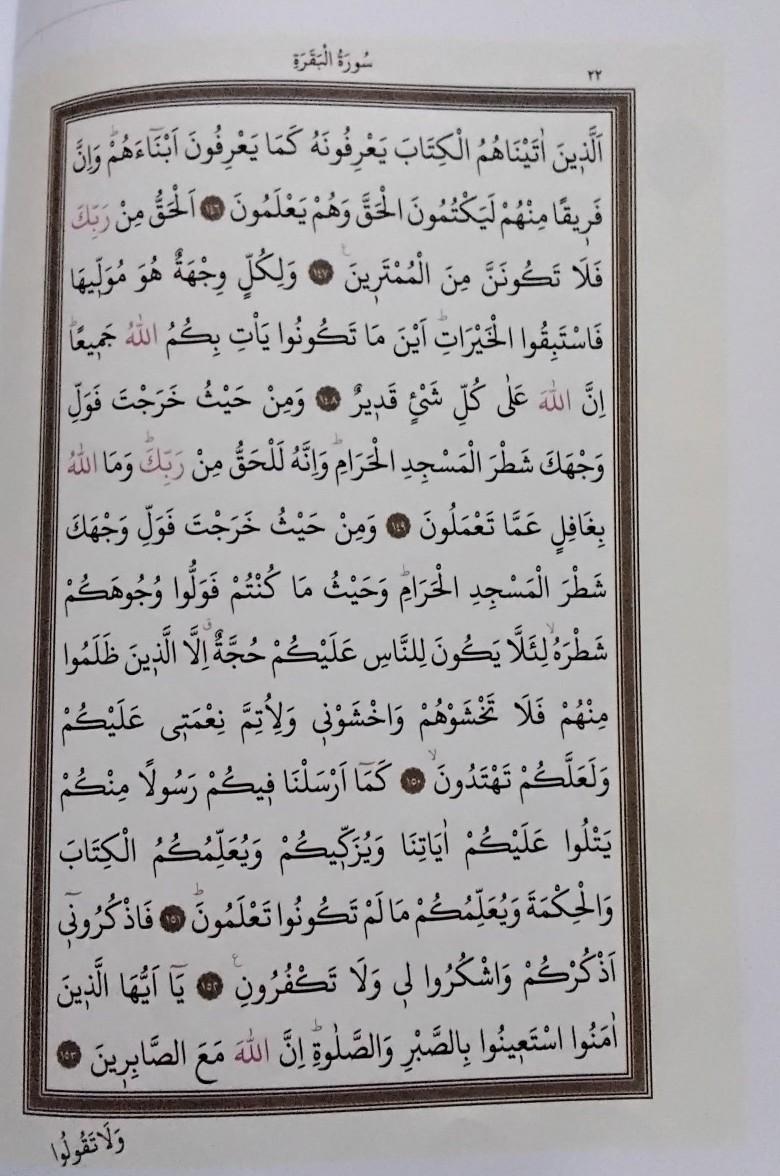 سُورَةُ الْبَقَرَةِ
٢٢
اَلَّذ۪ينَ اٰتَيْنَاهُمُ الْكِتَابَ يَعْرِفُونَهُ كَمَا يَعْرِفُونَ اَبْنَٓاءَهُمْۜ وَاِنَّ
فَر۪يقًا مِنْهُمْ لَيَكْتُمُونَ الْحَقَّ وَهُمْ يَعْلَمُونَ ﴿١٤٦﴾ اَلْحَقُّ مِنْ رَبِّكَ
فَلَا تَكُونَنَّ مِنَ الْمُمْتَر۪ينَ۟ ﴿١٤٧﴾ وَلِكُلٍّ وِجْهَةٌ هُوَ مُوَلّ۪يهَا
فَاسْتَبِقُوا الْخَيْرَاتِۜ اَيْنَ مَا تَكُونُوا يَأْتِ بِكُمُ اللّٰهُ جَم۪يعًاۜ
اِنَّ اللّٰهَ عَلٰى كُلِّ شَيْءٍ قَد۪يرٌ ﴿١٤٨﴾ وَمِنْ حَيْثُ خَرَجْتَ فَوَلِّ
وَجْهَكَ شَطْرَ الْمَسْجِدِ الْحَرَامِۜ وَاِنَّهُ لَلْحَقُّ مِنْ رَبِّكَۜ وَمَا اللّٰهُ
بِغَافِلٍ عَمَّا تَعْمَلُونَ ﴿١٤٩﴾ وَمِنْ حَيْثُ خَرَجْتَ فَوَلِّ وَجْهَكَ
شَطْرَ الْمَسْجِدِ الْحَرَامِۜ وَحَيْثُ مَا كُنْتُمْ فَوَلُّوا وُجُوهَكُمْ
شَطْرَهُۙ لِئَلَّا يَكُونَ لِلنَّاسِ عَلَيْكُمْ حُجَّةٌۗ اِلَّا الَّذ۪ينَ ظَلَمُوا
مِنْهُمْ فَلَا تَخْشَوْهُمْ وَاخْشَوْن۪ي وَلِاُتِمَّ نِعْمَت۪ي عَلَيْكُمْ
وَلَعَلَّكُمْ تَهْتَدُونَۙ ﴿١٥٠﴾ كَمَٓا اَرْسَلْنَا ف۪يكُمْ رَسُولًا مِنْكُمْ
يَتْلُوا عَلَيْكُمْ اٰيَاتِنَا وَيُزَكّ۪يكُمْ وَيُعَلِّمُكُمُ الْكِتَابَ
وَالْحِكْمَةَ وَيُعَلِّمُكُمْ مَا لَمْ تَكُونُوا تَعْلَمُونَۜ ﴿١٥١﴾ فَاذْكُرُون۪ٓي
اَذْكُرْكُمْ وَاشْكُرُوا ل۪ي وَلَا تَكْفُرُونِ۟ ﴿١٥٢﴾ يَٓا اَيُّهَا الَّذ۪ينَ
اٰمَنُوا اسْتَع۪ينُوا بِالصَّبْرِ وَالصَّلٰوةِۜ اِنَّ اللّٰهَ مَعَ الصَّابِر۪ينَ ﴿١٥٣﴾
وَلَا تَقُولُوا